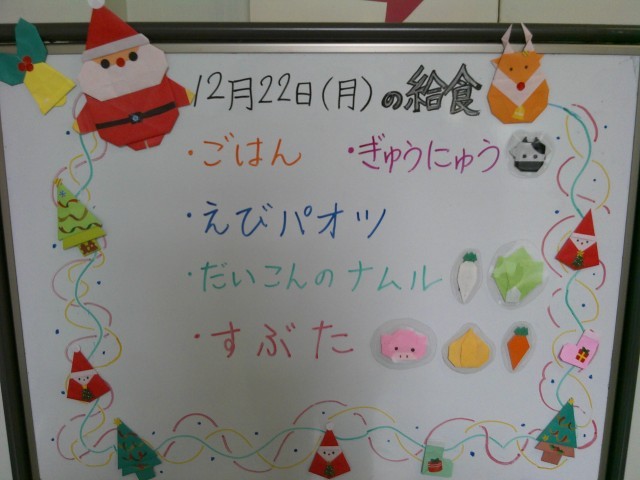 12月22日(月)の給食
・ごはん ・ぎゅうにゅう
・えびパオツ
・だいこんのナムル
・すぶた